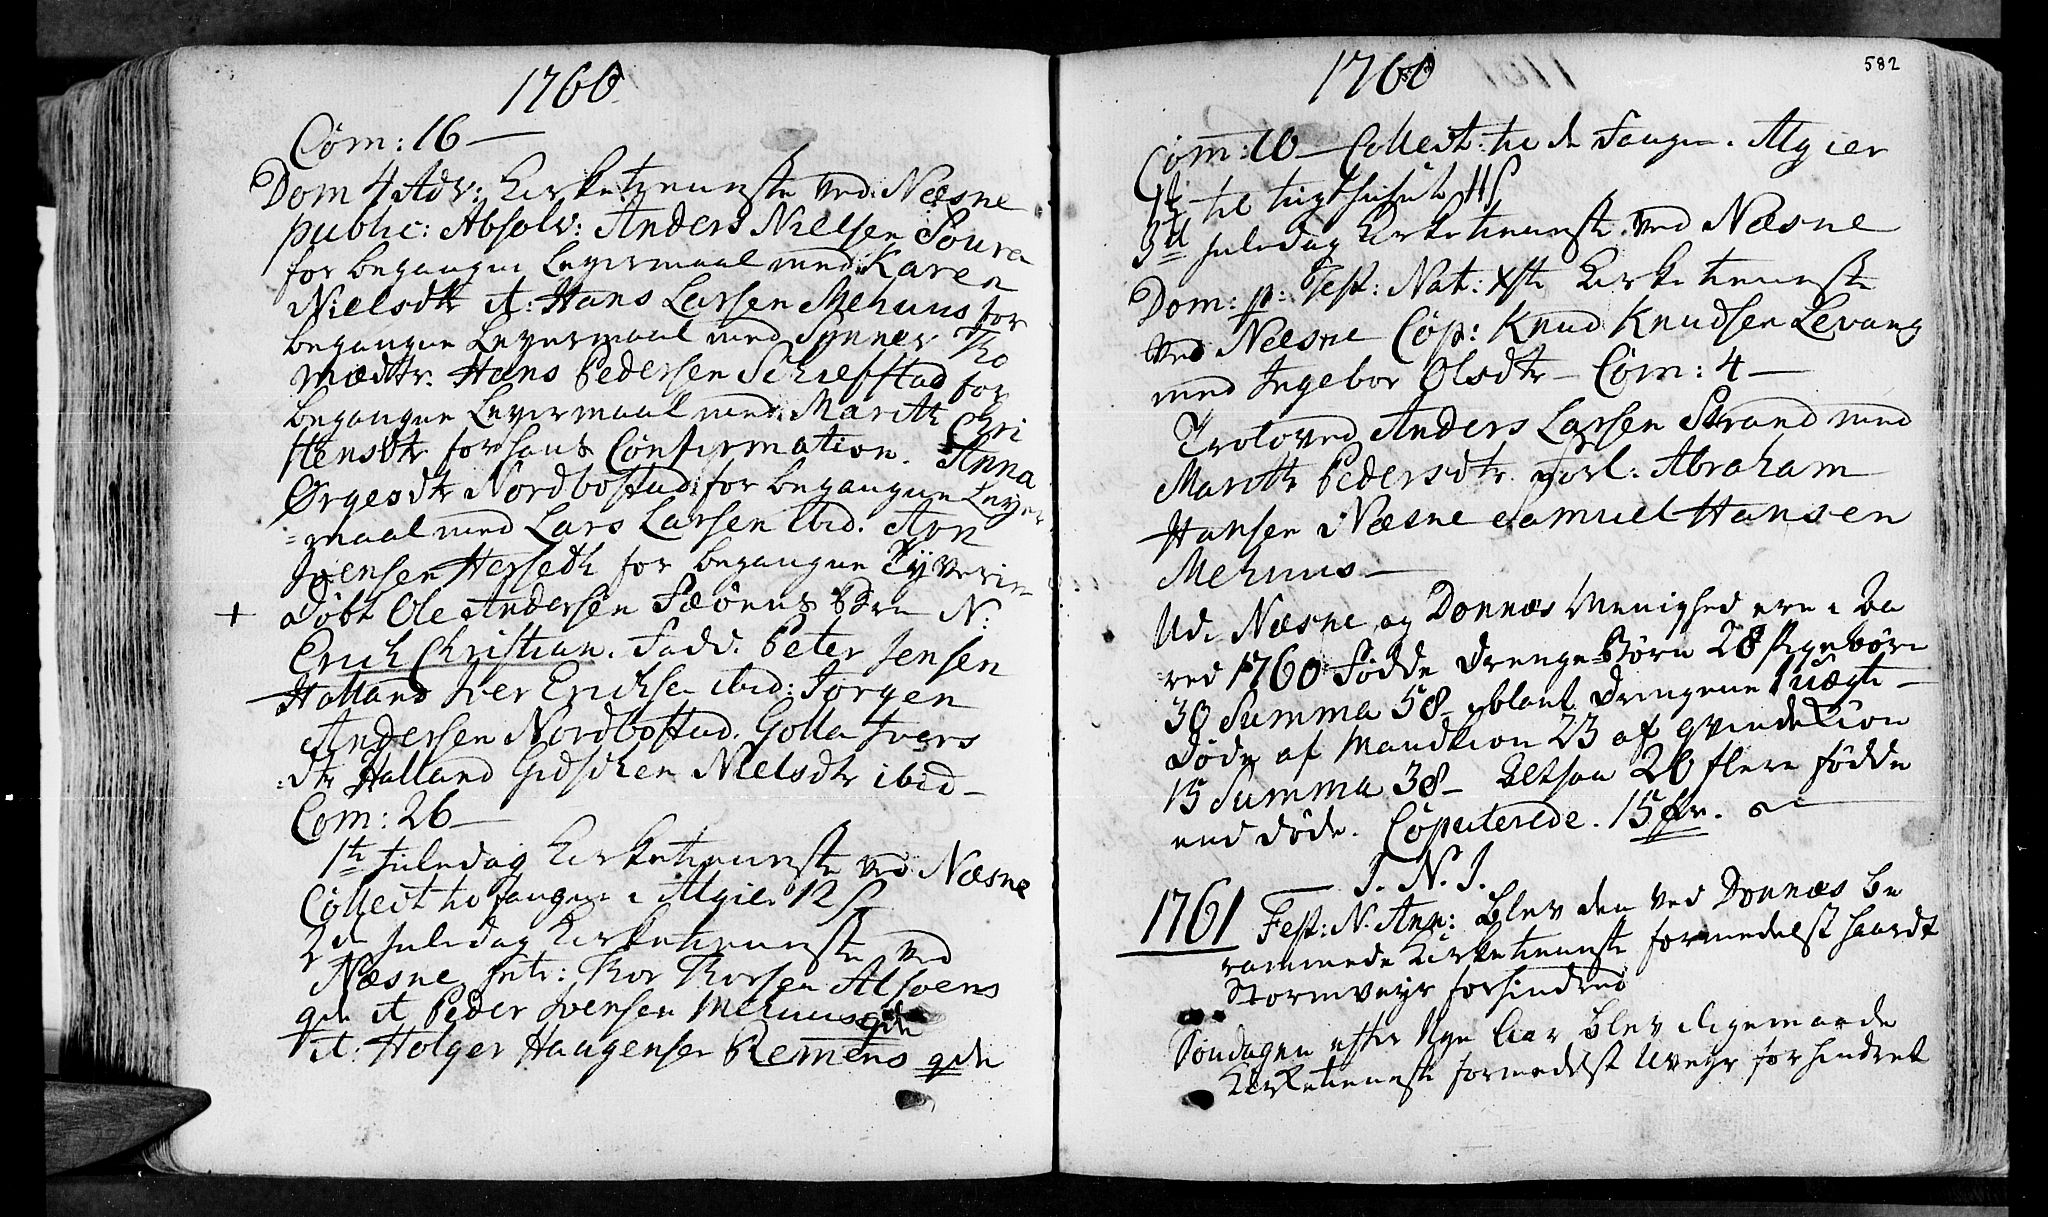 1760
Com: 16 —
Dom 4 Adv: Kirketieneste ved Næsne
public: Absolv: Anders Nielsen Soura
for begangne Leyermaal med Karen
Nielsdtr it: Hans Larsen Mehuus for
begangne Leyermaal med Synnev Tho
mædtr. Hans Pedersen Schiefstad for
begangne Leyermaal med Marith Chri
stensdtr for hans Confirmation. Anna
Ørgesdtr Nordbostad for begangne Leyer
=maal med Lars Larsen ibid. Arn
Joensen Herseth for begangne Tyverie
+ døbt Ole Andersen Børn N:
Erich Christian. Fadd. Peter Jensen
Halland Iver Erichsen ibid: Jørgen
Andersen Nordbostad. Golla Ivers
:dtr Halland Gidschen Nielsdtr ibid —
Com: 26 —
1te Juledag Kirketieneste ved Næsne
Collect til fangne i Algier 12 s
2de Juledag Kirketieneste ved
Næsne Intr: Thor Thorsen Alsøens
qde it Peder Ivensen Mehuus qde
it: Holger Haagensen Remens qde
1760
582
Com: 10 — Collect: til de Fangne i Algier
til tugthuset
3die Juledag Kirketieneste ved Næsne
Dom: p: Fest: Nat: Xsti Kirketieneste
ved Næsne Cop: Knud Knudsen Levang
med Ingebor Olsdtr — Com: 4 —
Troloved Anders Larsen Strand med
Marith Pedersdtr Forl: Abraham
Hansen Næsne Samuel Hansen
Mehuus —
Udi Næsne og Dønnæs Menighed ere i Aa
red 1760 Fødde Drenge Børn 28 Pigebørn
30 Summa 58 — blant Drengene 1 uægte —
Døde af Mandkion 23 af Qvindekion
15 Summa 38 — Altsaa 20 flere fødde
end døde. Copulerede. 15 par.
I. N. J.
1761 Fest: N. Ann: Blev den ved Dønnæs be
rammede Kirketieneste formedelst haardt
Stormveyr forhindred
Søndagen efter Nye Aar blev ligemaade
Kirketieneste formedelst Uveyr forhindret